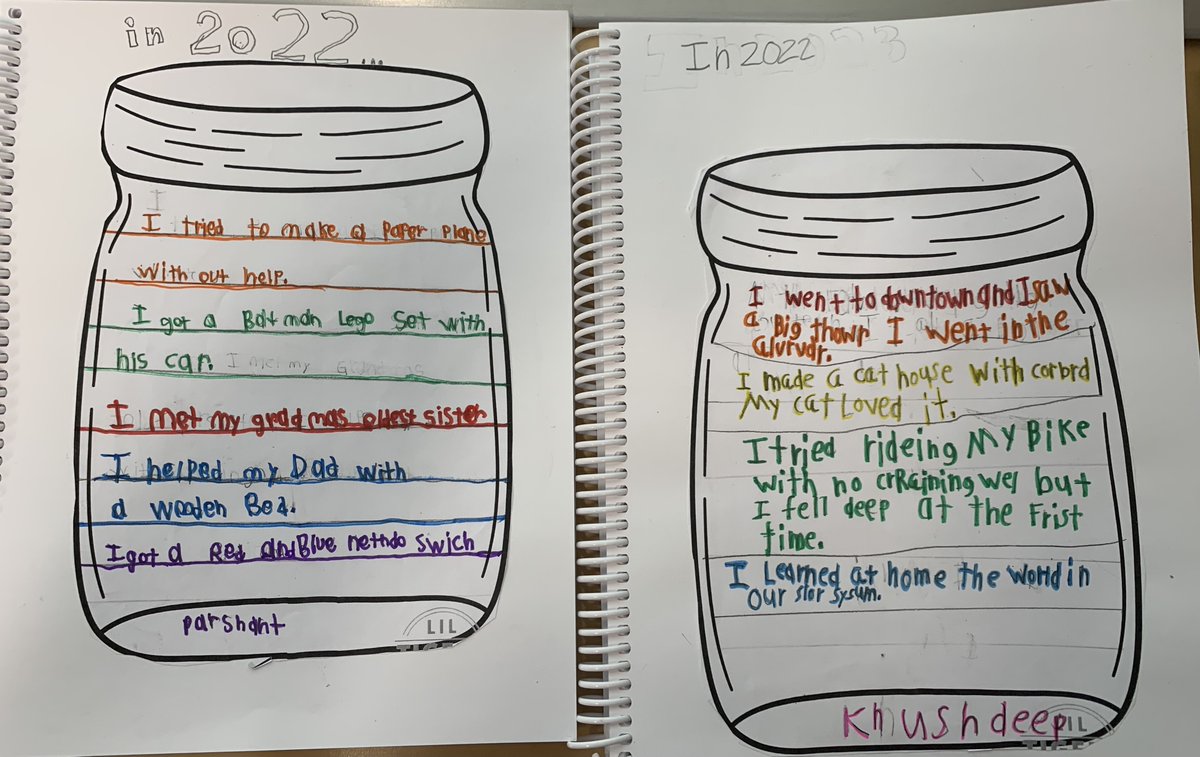 in 2022...
I tried to make a paper plane
with out help.
I got a Batman Lego set with
his car.
I met my gradmas oldest sister
I helped my Dad with
a wooden Bed.
I got a Red and Blue netndo swich
parshant
LIL
In 2022
I went to downtown and I saw
a Big thowr I went in the
alvrvdr.
I made a cat house with corbrd
My cat Loved it.
I tried rideing My Bike
with no crRaining wel but
I fell deep at the Frist
time.
I Learned at home the world in
our star systum.
Khushdeep
LIL